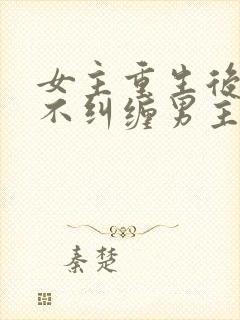 女主重生後
不纠缠男主
秦楚